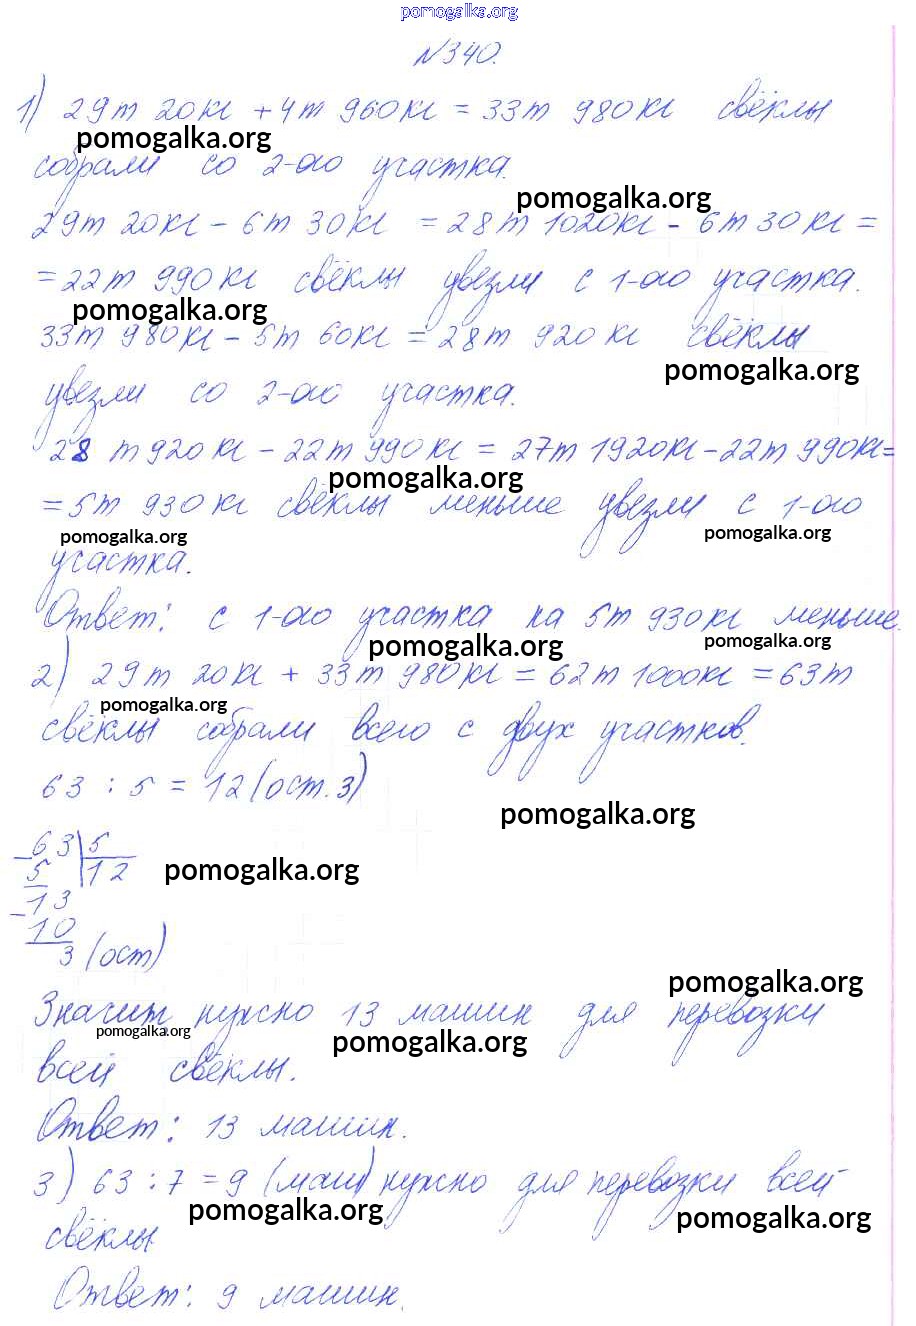 pomogalka.org
№340.
1) 29т 20кг + 4т 960кг = 33т 980кг свёклы
pomogalka.org
собрали со 2-ого участка.
pomogalka.org
29т 20кг - 6т 30кг = 28т 1020кг - 6т 30кг =
= 22т 990кг свёклы увезли с 1-ого участка.
pomogalka.org
33т 980кг - 5т 60кг = 28т 920кг свёклы
pomogalka.org
увезли со 2-ого участка.
28т 920кг - 22т 990кг = 27т 1920кг - 22т 990кг =
pomogalka.org
= 5т 930кг свёклы меньше увезли с 1-ого
pomogalka.org pomogalka.org
участка.
Ответ: с 1-ого участка на 5т 930кг меньше.
pomogalka.org pomogalka.org
2) 29т 20кг + 33т 980кг = 62т 1000кг = 63т
pomogalka.org
свёклы собрали всего с двух участков.
63 : 5 = 12 (ост. 3)
pomogalka.org
- 63 | 5
5 12
pomogalka.org
- 13
10
3 (ост)
pomogalka.org
Значит нужно 13 машин для перевозки
pomogalka.org pomogalka.org
всей свёклы.
Ответ: 13 машин.
3) 63 : 7 = 9 (маш) нужно для перевозки всей
pomogalka.org pomogalka.org
свёклы.
Ответ: 9 машин.